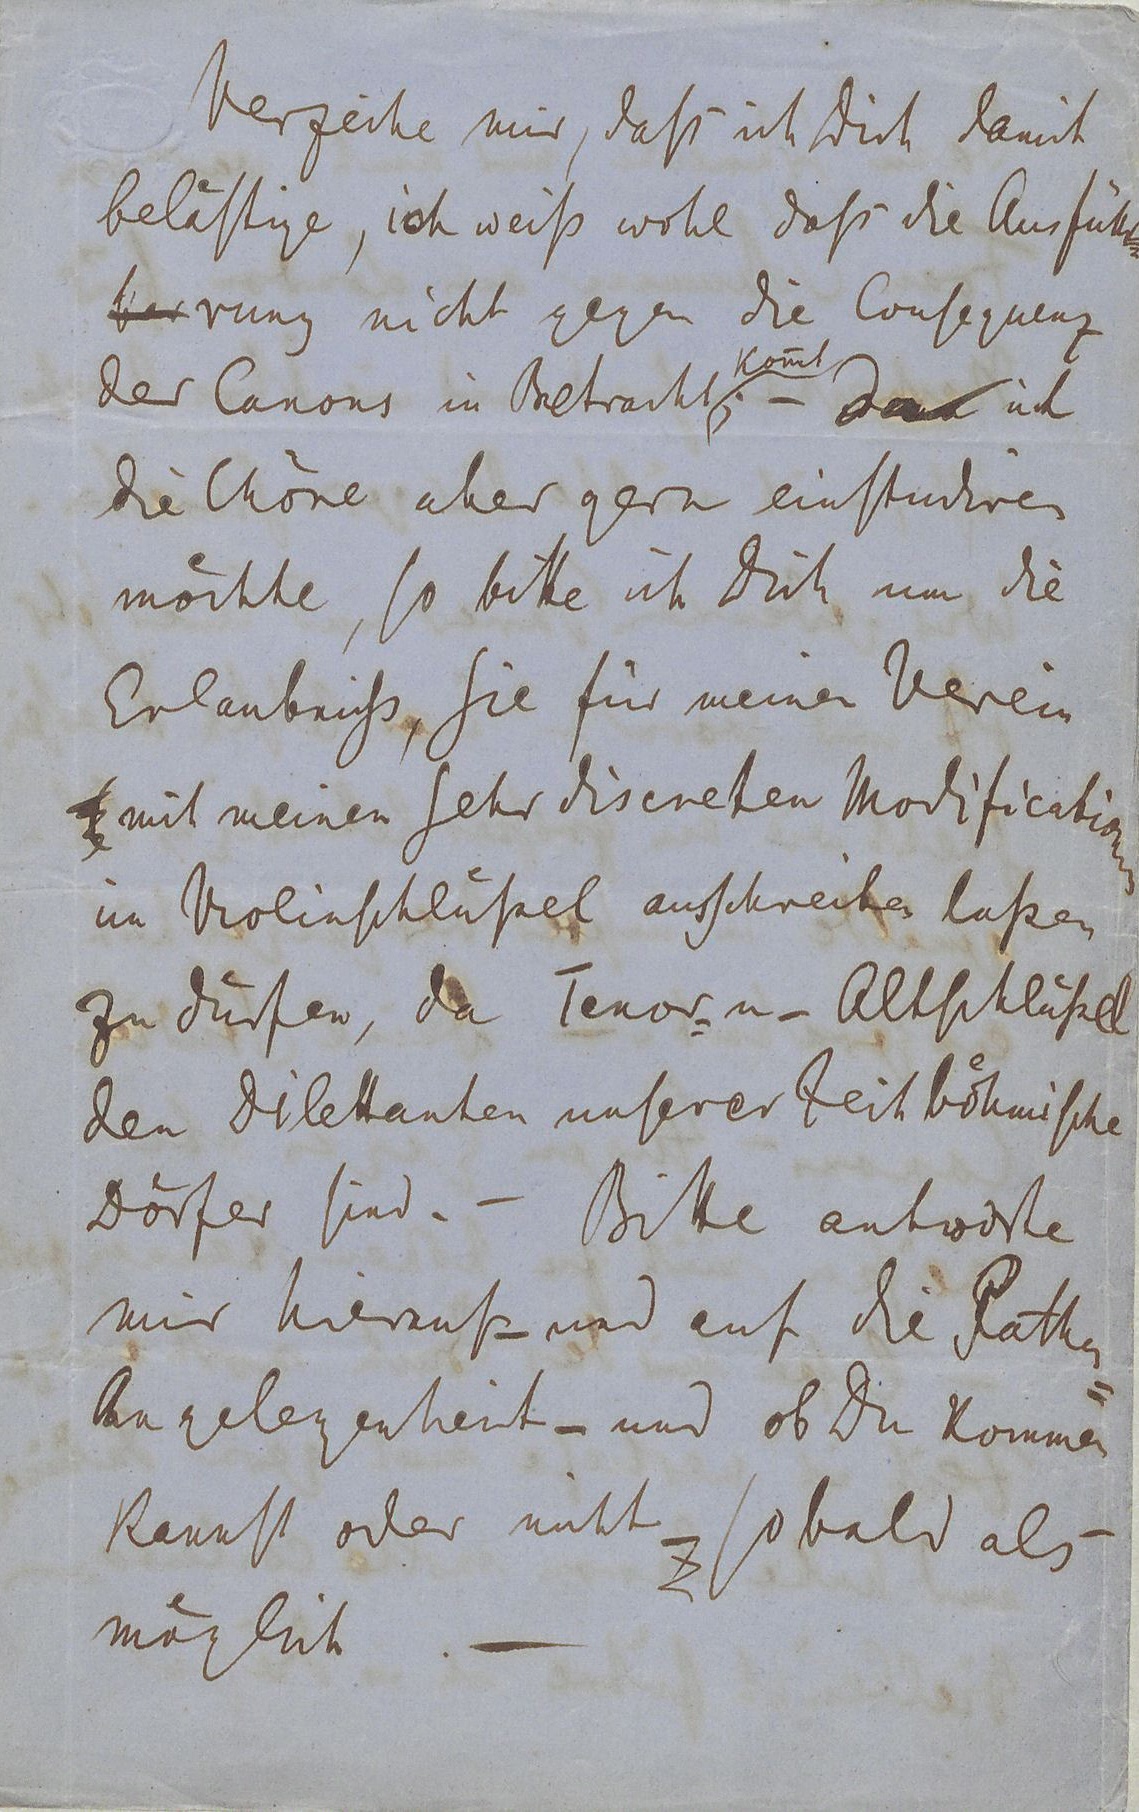 Verzeihe mir, daß ich Dich damit
belästige, ich weiß wohl daß die Ausfüh=
rung nicht gegen die Consequenz
der Canons in Betracht kom̅t; – Da ich
die Chöre aber gern einstudiren
möchte, so bitte ich Dich um die
Erlaubniß, sie für meinen Verein
mit meinen sehr discreten Modificationen
im Violinschlüßel ausschreiben laßen
zu dürfen, da Tenor= u– Altschlüßel
den Dilettanten unserer Zeit böhmische
Dörfer sind. – Bitte antworte
mir hierauf – und auf die Pathen=
Angelegenheit – und ob Du kommen
kannst oder nicht – so bald als
möglich . —